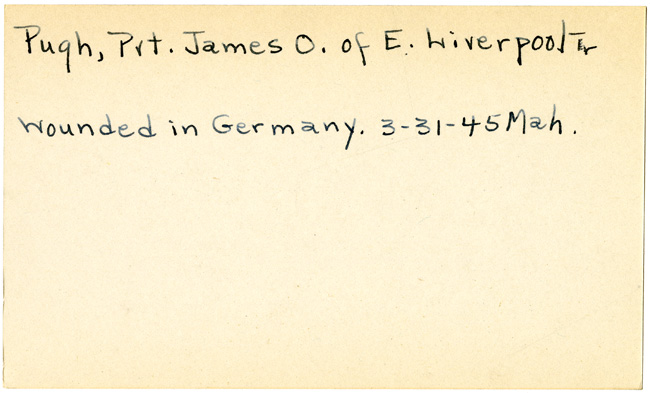 Pugh, Pvt. James O. of E. Liverpool Tr
wounded in Germany. 3-31-45 Mah.